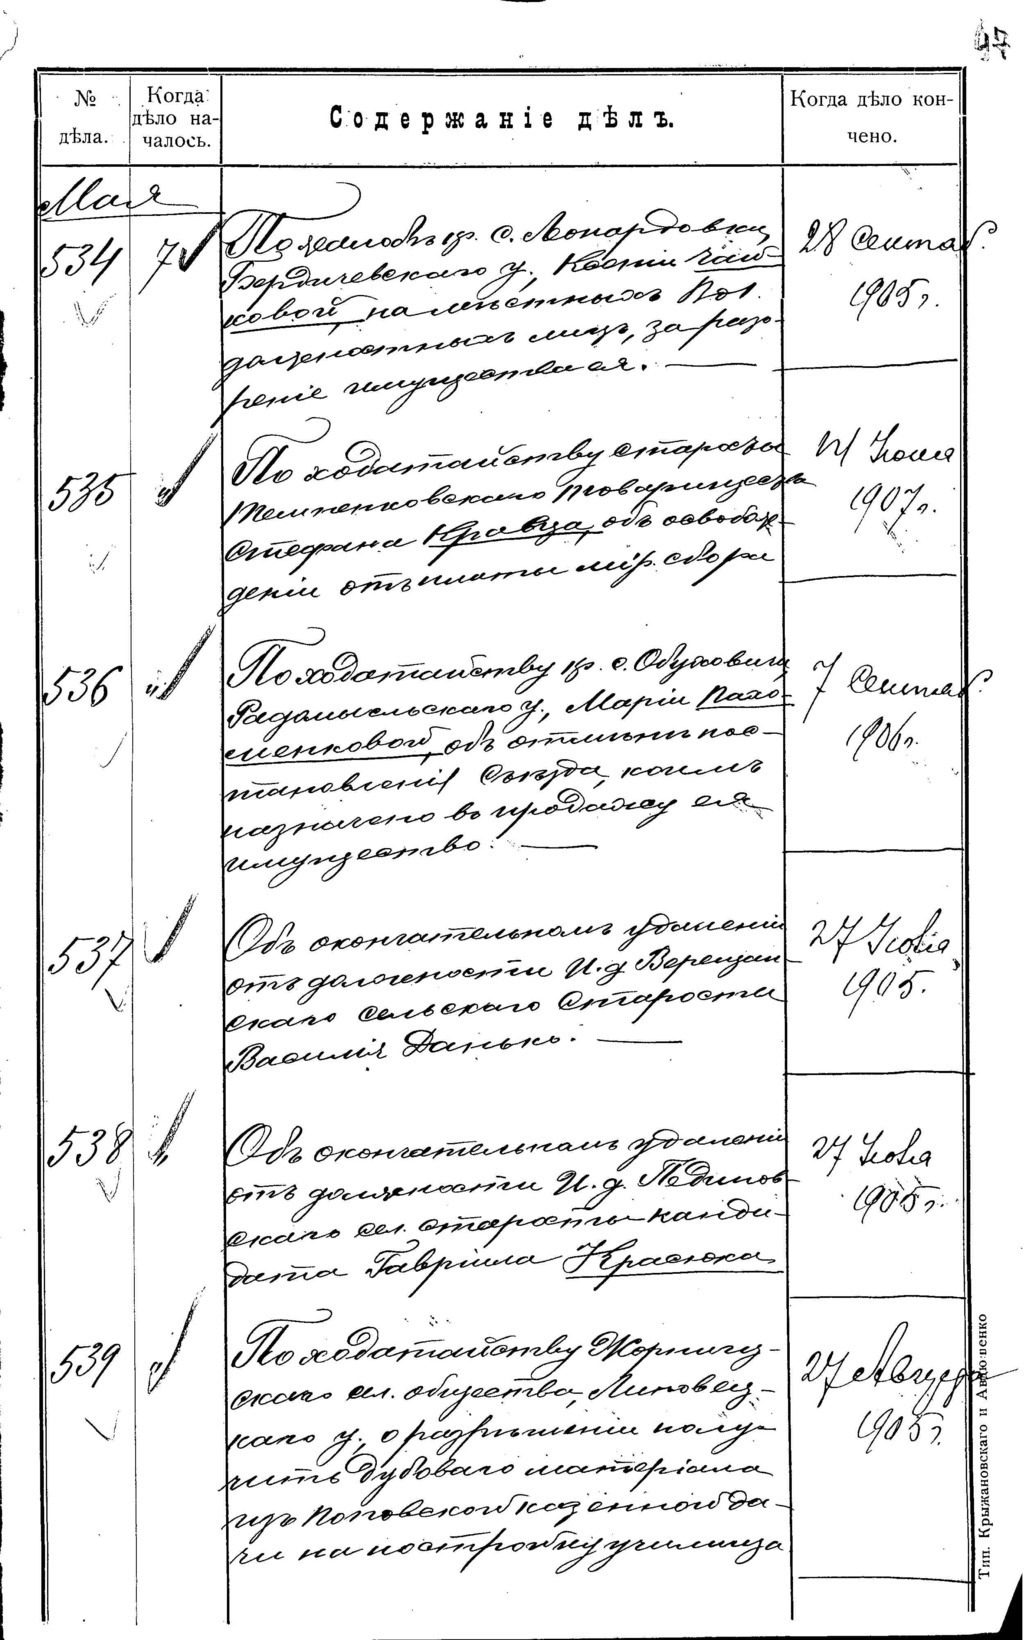 47
№ дѣла.
Когда дѣло началось.
Содержаніе дѣлъ.
Когда дѣло кончено.
Мая
534
7
По жалобѣ кр. с. Леонардовки,
Бердичевскаго у., Ксеніи Чай-
ковой, на мѣстныхъ
должностныхъ лицъ, за разо-
реніе имущества ея.
28 Сентяб.
1905 г.
535
По ходатайству старосты
товарищества
Стефана Кравца, объ освобож-
деніи отъ платы мір. сбора
1907 г.
536
По ходатайству кр. с. Обуховичи,
Радомысльскаго у., Маріи Пахо-
менковой, объ отмѣнѣ пос-
тановленія Съѣзда, коимъ
назначено въ продажу ея
имущество.
7 Сентяб.
1906 г.
537
Объ окончательномъ удаленіи
отъ должности И. д.
скаго Сельскаго Старосты
Василія Данько.
27 Іюля
1905.
538
Объ окончательномъ удаленіи
отъ должности И. д. Пединов-
скаго сел. старосты канди-
дата Гавріила Красюка
27 Іюля
1905 г.
539
По ходатайству
скаго сел. общества, Липовец-
каго у., о разрѣшеніи полу-
чить дубоваго матеріала
изъ Поповской казенной да-
чи на постройку училища
27 Августа
1905 г.
Тип. Крыжановскаго и Авдюшенко